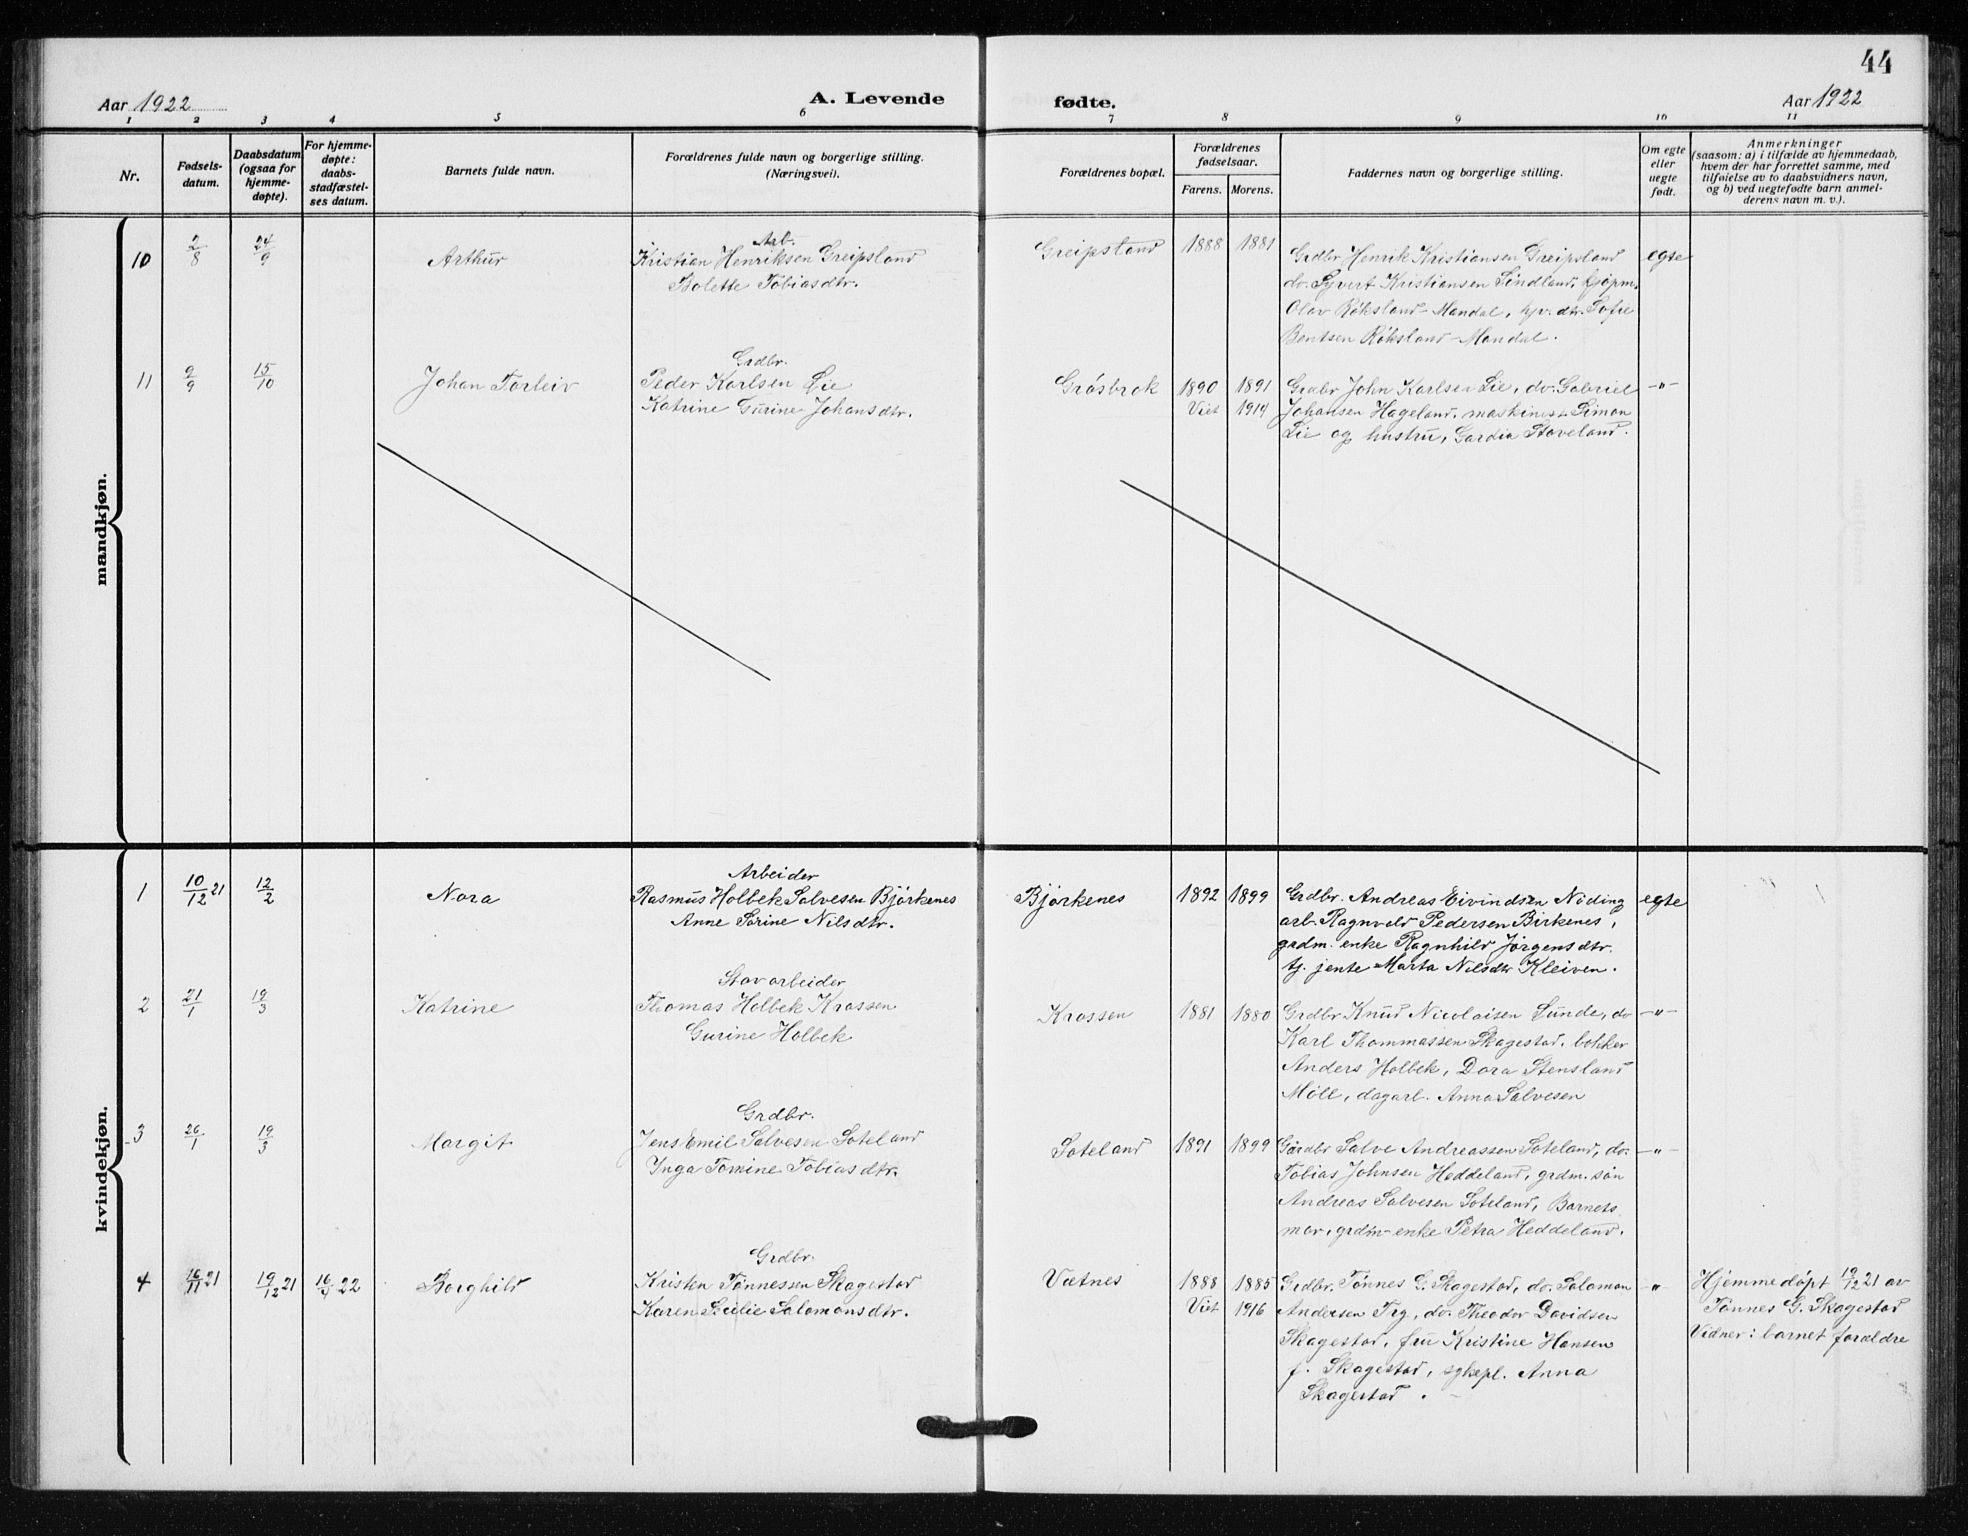 44
Aar 1922
A. Levende
fødte.
Aar 1922
1 2 3 4 5 6 7 8 9 10 11
Nr.
Fødsels-
datum.
Daabsdatum
(ogsaa for
hjemme-
døpte).
For hjemme-
døpte:
daabs-
stadfæstel-
ses datum.
Barnets fulde navn.
Forældrenes fulde navn og borgerlige stilling.
(Næringsvei).
Forældrenes bopæl.
Forældrenes
fødselsaar.
Farens. Morens.
Faddernes navn og borgerlige stilling.
Om egte
eller
uegte
født.
Anmerkninger
(saasom: a) i tilfælde av hjemmedaab,
hvem der har forrettet samme, med
tilføielse av to daabsvidners navn,
og b) ved uegtefødte barn anmel-
derens navn m. v.).
mandkjøn.
10
2/8
24/9
Arthur
Arb.
Kristian Henriksen Greipsland
Bolette Tobiasdtr.
Greipsland
1888 1881
Grdbr Henrik Kristiansen Greipsland
do. Syvert Kristiansen Lindland, kjøpm.
Olav Røksland-Mandal, hjv. dtr. Sofie
Bentsen Røksland-Mandal.
egte
11
9/9
15/10
Johan Torleiv
Grdbr.
Peder Karlsen Lie
Katrine Gurine Johansdtr.
Gråsbrok
1890 1891
Viet 1914
Grdbr John Karlsen Lie, do. Gabriel
Johansen Hageland, maskinist Simon
Lie og hustru, Gardia Staveland.
-"-
kvindekjøn.
1
10/12 21
12/2
Nora
Arbeider
Rasmus Holbek Salvesen Bjørkenes
Anne Sørine Nilsdtr.
Bjørkenes
1892 1899
Grdbr. Andreas Eivindsen Nøding
arb. Ragnvald Pedersen Birkenes,
grdm. enke Ragnhild Jørgensdtr.
tj. jente Marta Nilsdtr Kleiven.
egte
2
21/1
19/3
Katrine
Stavarbeider
Thomas Holbek Krossen
Gurine Holbek
Krossen
1881 1880
Grdbr Knud Nicolaisen Sunde, do
Karl Thommassen Skagestad, bøkker
Anders Holbek, Dora Stensland
Møll, dagarb. Anna Salvesen
-"-
3
26/1
19/3
Margit
Grdbr.
Jens Emil Salvesen Søteland
Inga Tomine Tobiasdtr.
Søteland
1891 1899
Gårdbr Salve Andreassen Søteland, do.
Tobias Johnsen Heddeland, grdm. søn
Andreas Salvesen Søteland, Barnets
mor, grdm-enke Petra Heddeland.
-"-
4
16/11 21
19/12 21
16/4 22
Borghild
Grdbr.
Kristen Tønnessen Skagestad
Karen Secilie Salomonsdtr.
Vatnes
1888 1885
Viet 1916
Grdbr. Tønnes G. Skagestad, do. Salomon
Andersen Try, do. Theodor Davidsen
Skagestad, fru Kristine Hansen
f. Skagestad, sykepl. Anna
Skagestad.
-"-
Hjemmedøpt 19/12 21 av
Tønnes G. Skagestad
Vidner: barnet forældre